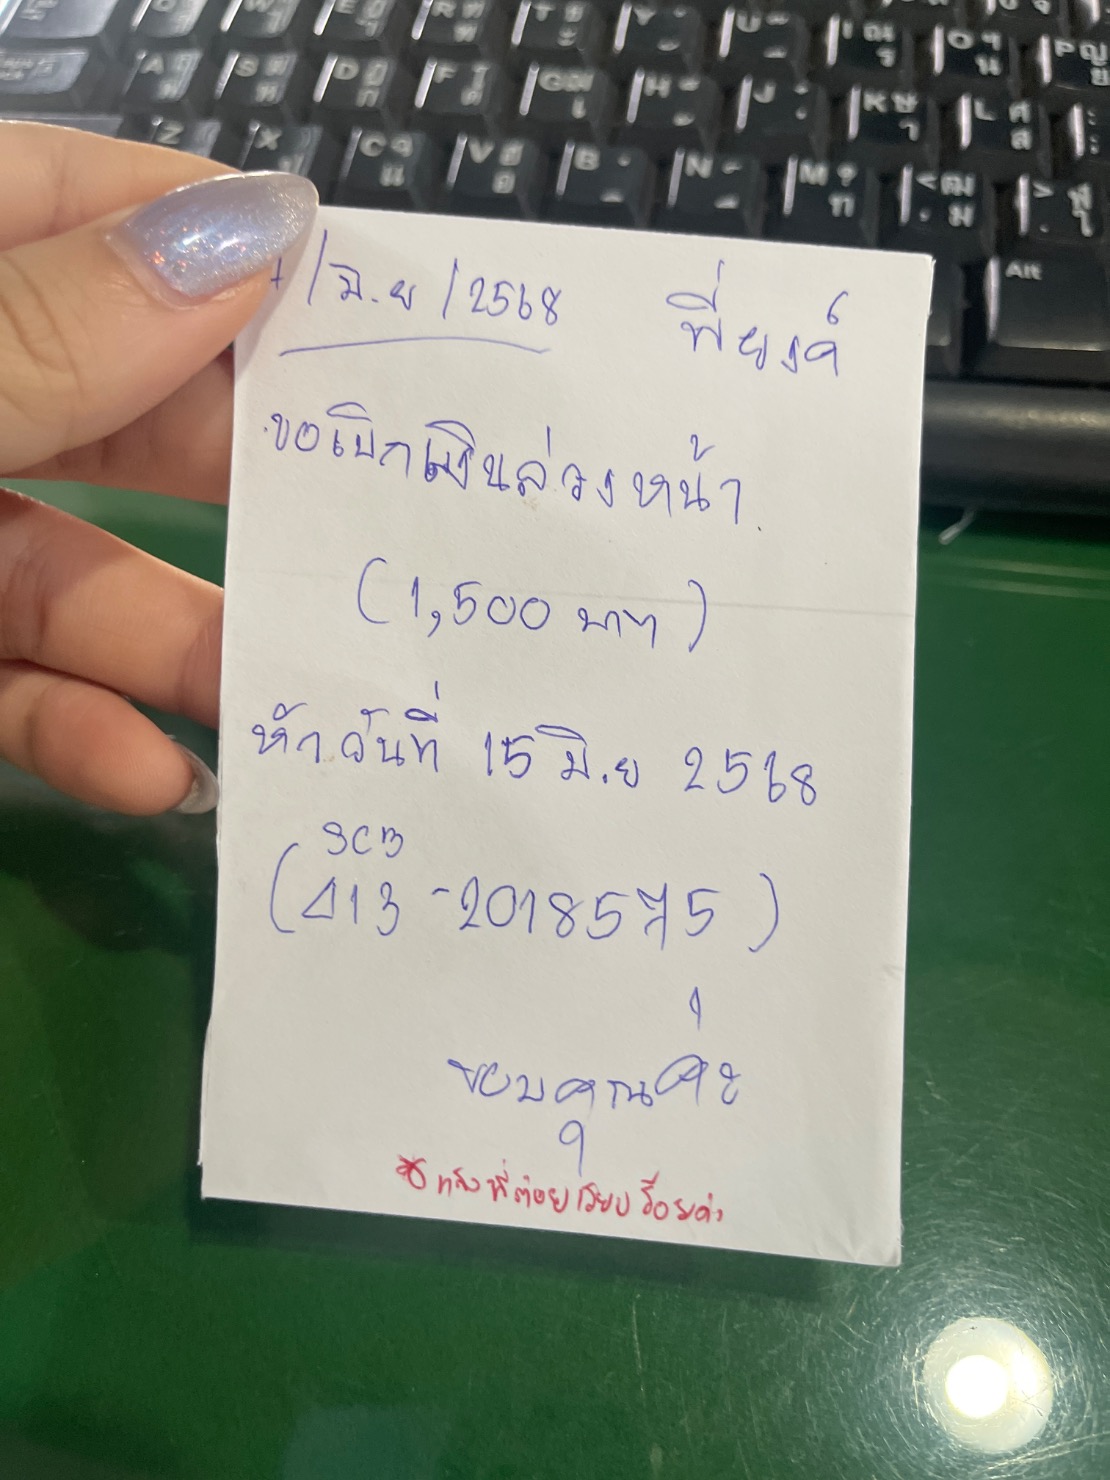 / มิ.ย / 2568 พี่ยงค์
ขอเบิกเงินล่วงหน้า
(1,500 บาท)
หักวันที่ 15 มิ.ย 2568
SCB
(413-2018575)
ขอบคุณค่ะ
พี่ต่อยเรียบร้อยค่ะ